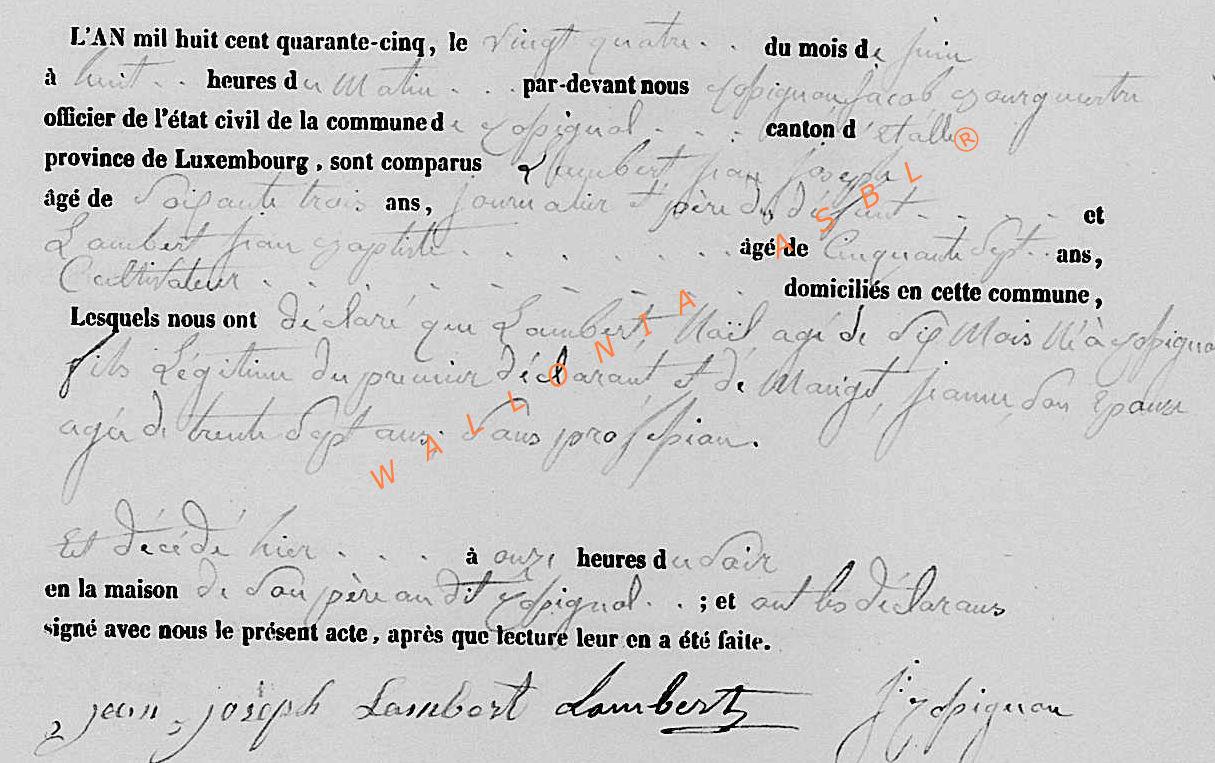 L'AN mil huit cent quarante-cinq, le vingt quatre du mois de juin
à huit heures du Matin par-devant nous Rossignon Jacob Bourgmestre
officier de l'état civil de la commune de Rossignol canton d'étalle
province de Luxembourg, sont comparus Lambert jean Joseph
âgé de Soixante trois ans, journalier et père du défunt et
Lambert jean Baptiste âgé de Cinquante Sept ans,
Cultivateur domiciliés en cette commune,
Lesquels nous ont déclaré que Lambert, Noël, agé de Six Mois Né à Rossignol
fils Légitime du premier déclarant et de Mangot, jeanne Son Epouse
agée de trente Sept ans. Sans profession.
Est décédé hier à onze heures du Soir
en la maison de Son père au dit Rossignol ; et ont les déclarans
signé avec nous le présent acte, après que lecture leur en a été faite.
jean joseph Lambert Lambert J Rossignon
WALLONIA ASBL ®